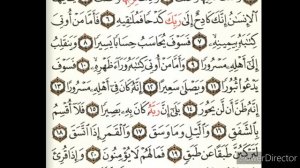 ٱلْإِنسَٰنُ إِنَّكَ كَادِحٌ إِلَىٰ رَبِّكَ كَدْحًا فَمُلَٰقِيهِ ٦ فَأَمَّا مَنْ أُوتِيَ
كِتَٰبَهُۥ بِيَمِينِهِۦ ٧ فَسَوْفَ يُحَاسَبُ حِسَابًا يَسِيرًا ٨ وَيَنقَلِبُ
إِلَىٰٓ أَهْلِهِۦ مَسْرُورًا ٩ وَأَمَّا مَنْ أُوتِيَ كِتَٰبَهُۥ وَرَآءَ ظَهْرِهِۦ ١٠ فَسَوْفَ
يَدْعُوا۟ ثُبُورًا ١١ وَيَصْلَىٰ سَعِيرًا ١٢ إِنَّهُۥ كَانَ فِيٓ أَهْلِهِۦ مَسْرُورًا ١٣
إِنَّهُۥ ظَنَّ أَن لَّن يَحُورَ ١٤ بَلَىٰٓ إِنَّ رَبَّهُۥ كَانَ بِهِۦ بَصِيرًا ١٥ فَلَآ أُقْسِمُ
بِٱلشَّفَقِ ١٦ وَٱلَّيْلِ وَمَا وَسَقَ ١٧ وَٱلْقَمَرِ إِذَا ٱتَّسَقَ ١٨
لَتَرْكَبُنَّ طَبَقًا عَن طَبَقٍ ١٩ فَمَا لَهُمْ لَا يُؤْمِنُونَ ٢٠ وَإِذَا قُرِئَ
PowerDirector